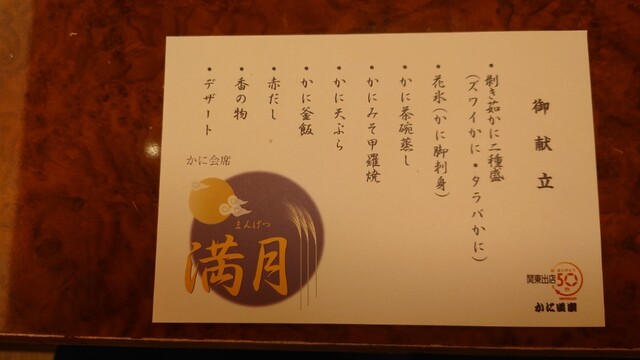 御献立
・剥き茹かに二種盛
(ズワイかに・タラバかに)
・花氷(かに脚刺身)
・かに茶碗蒸し
・かにみそ甲羅焼
・かに天ぷら
・かに釜飯
・赤だし
・香の物
・デザート
かに会席
まんげつ
満月
関東出店
50
かに道楽